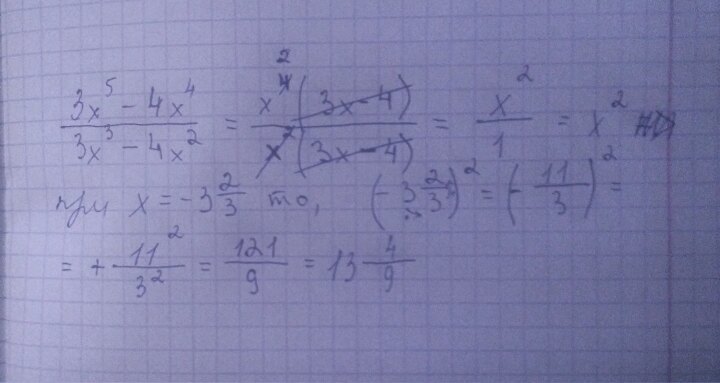 (3x⁵ - 4x⁴)/(3x³ - 4x²) = x⁴ ² (3x - 4)/x² (3x - 4) = x²/1 = x²
при x = -3 2/3 то, (-3 2/3)² = (- 11/3)² =
= + 11²/3² = 121/9 = 13 4/9